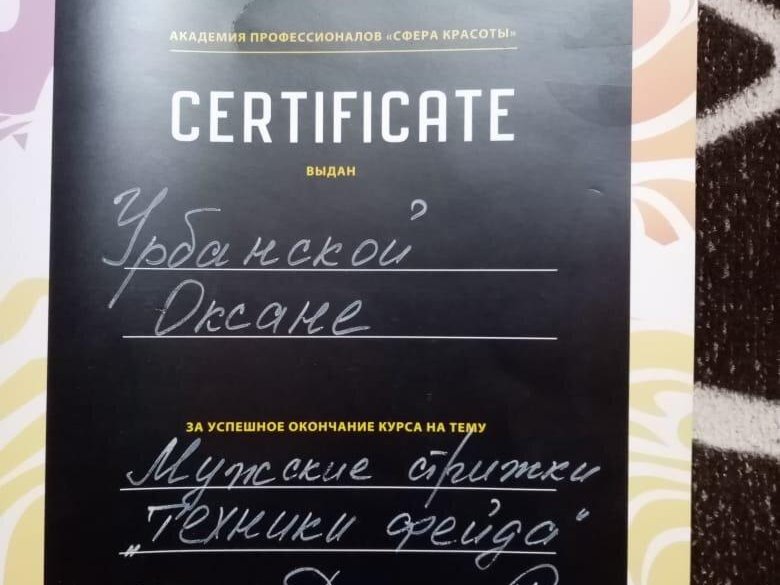 АКАДЕМИЯ ПРОФЕССИОНАЛОВ «СФЕРА КРАСОТЫ»
CERTIFICATE
ВЫДАН
Урбанской
Оксане
ЗА УСПЕШНОЕ ОКОНЧАНИЕ КУРСА НА ТЕМУ
Мужские стрижки
„Техники фейда“